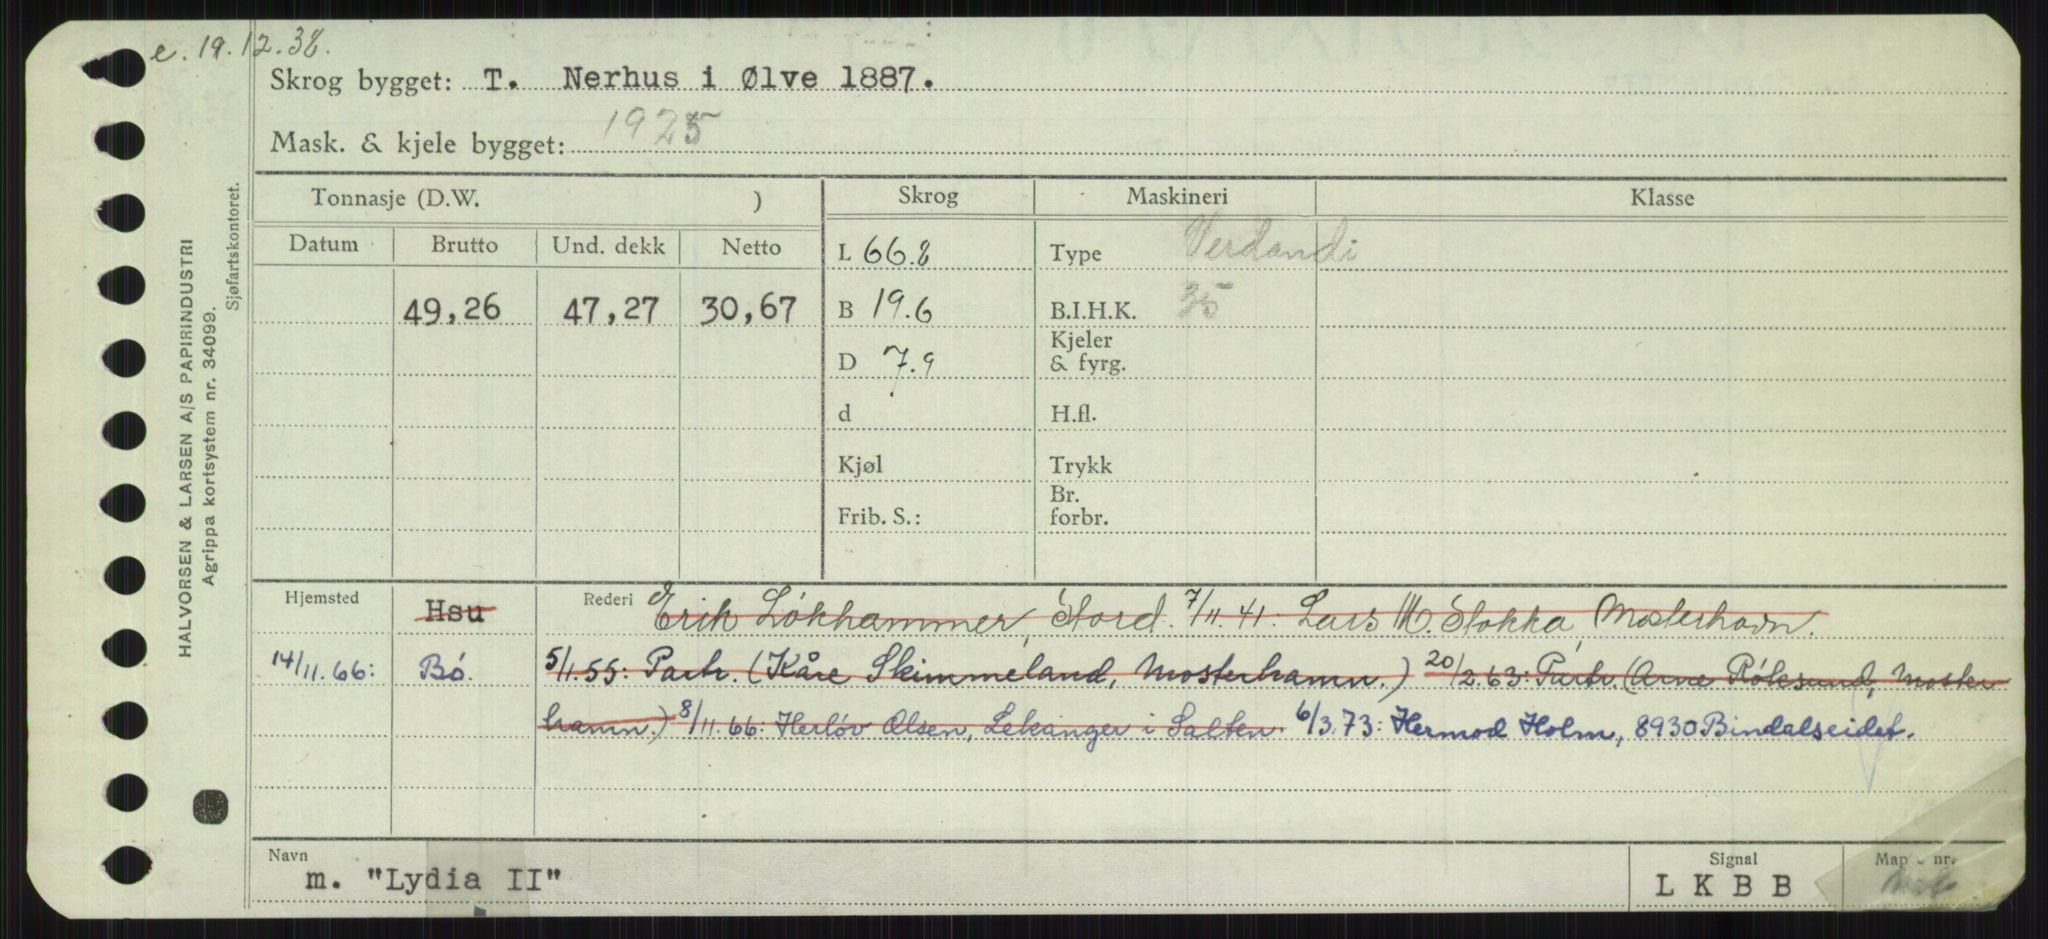 e. 19.12.38.
Skrog bygget: T. Nerhus i Ølve 1887.
Mask. & kjele bygget: 1925
Tonnasje (D.W. )
Skrog
Maskineri
Klasse
Datum Brutto Und. dekk Netto
L 66.8
Type Verdandi
49,26 47,27 30,67
B 19.6
B.I.H.K. 35
D 7.9
Kjeler
& fyrg.
d
H.fl.
Kjøl
Trykk
Frib. S.:
Br.
forbr.
Hjemsted Hsu
Rederi Erik Løkhammer, Stord. 7/11.41: Lars M. Stokka, Mosterhavn.
14/11.66: Bø. 5/1.55: Partr. (Kåre Skimmeland, Mosterhamn.) 20/2.63: Partr. (Arne Røksund, Moster
hamn.) 8/11.66: Herløv Olsen, Lekanger i Salten 6/3.73: Hermod Holm, 8930 Bindalseidet.
Navn
m. "Lydia II"
Signal
L K B B
Mappe nr.
HALVORSEN & LARSEN A/S PAPIRINDUSTRI
Agrippa kortsystem nr. 34099.
Sjøfartskontoret.